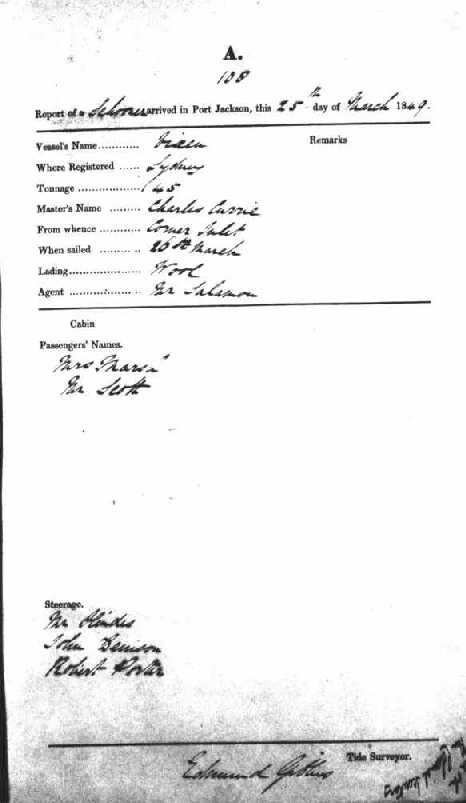 A.
108
Report of a Schooner arrived in Port Jackson, this 25th day of March 1849.
Remarks
Vessel's Name........... Vixen
Where Registered ...... Sydney
Tonnage .................. 145
Master's Name ......... Charles Currie
From whence ............ Corner Inlet
When sailed ............ 20th March
Lading..................... Wool
Agent ..................... Mr Salamon
Cabin
Passengers' Names.
Mrs
Mr Scott
Steerage.
Mr Hindes
John Denison
Robert Porter
Tide Surveyor.
Edmund